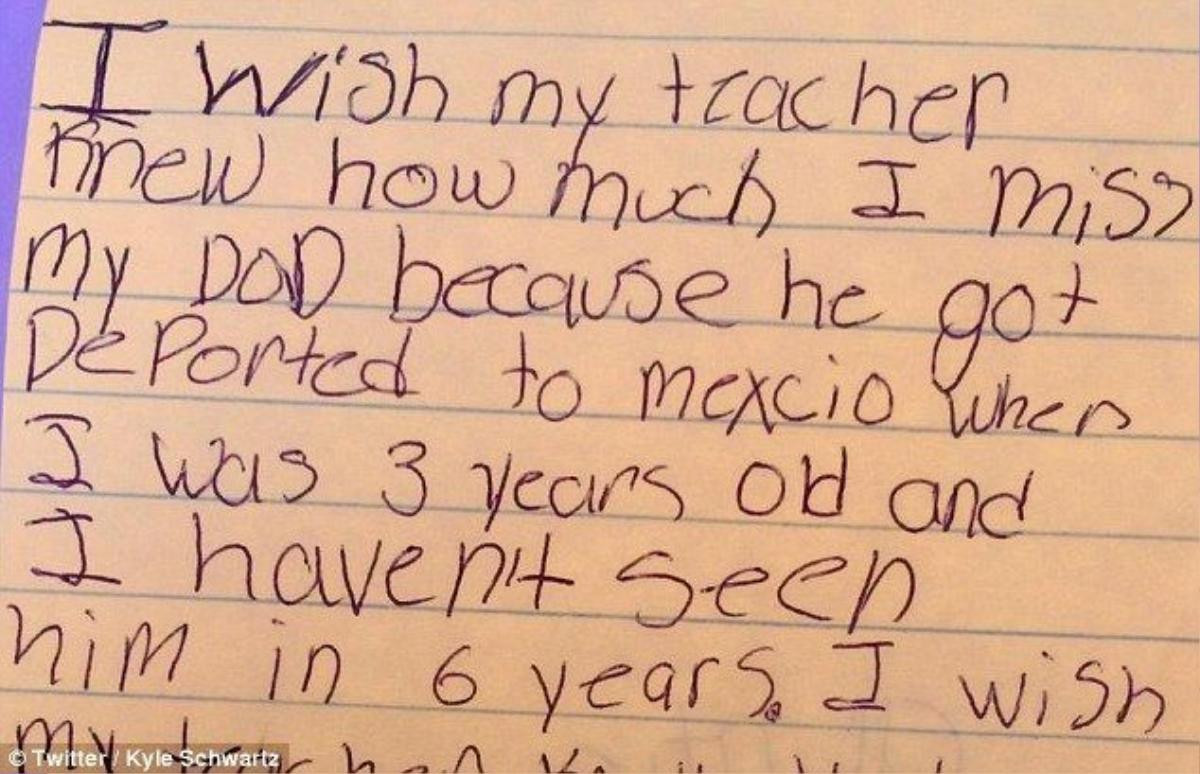 I wish my teacher
knew how much I miss
my DaD because he got
DePorted to mexcio when
I was 3 years old and
I haven't seen
him in 6 years. I wish
my teacher
© Twitter / Kyle Schwartz